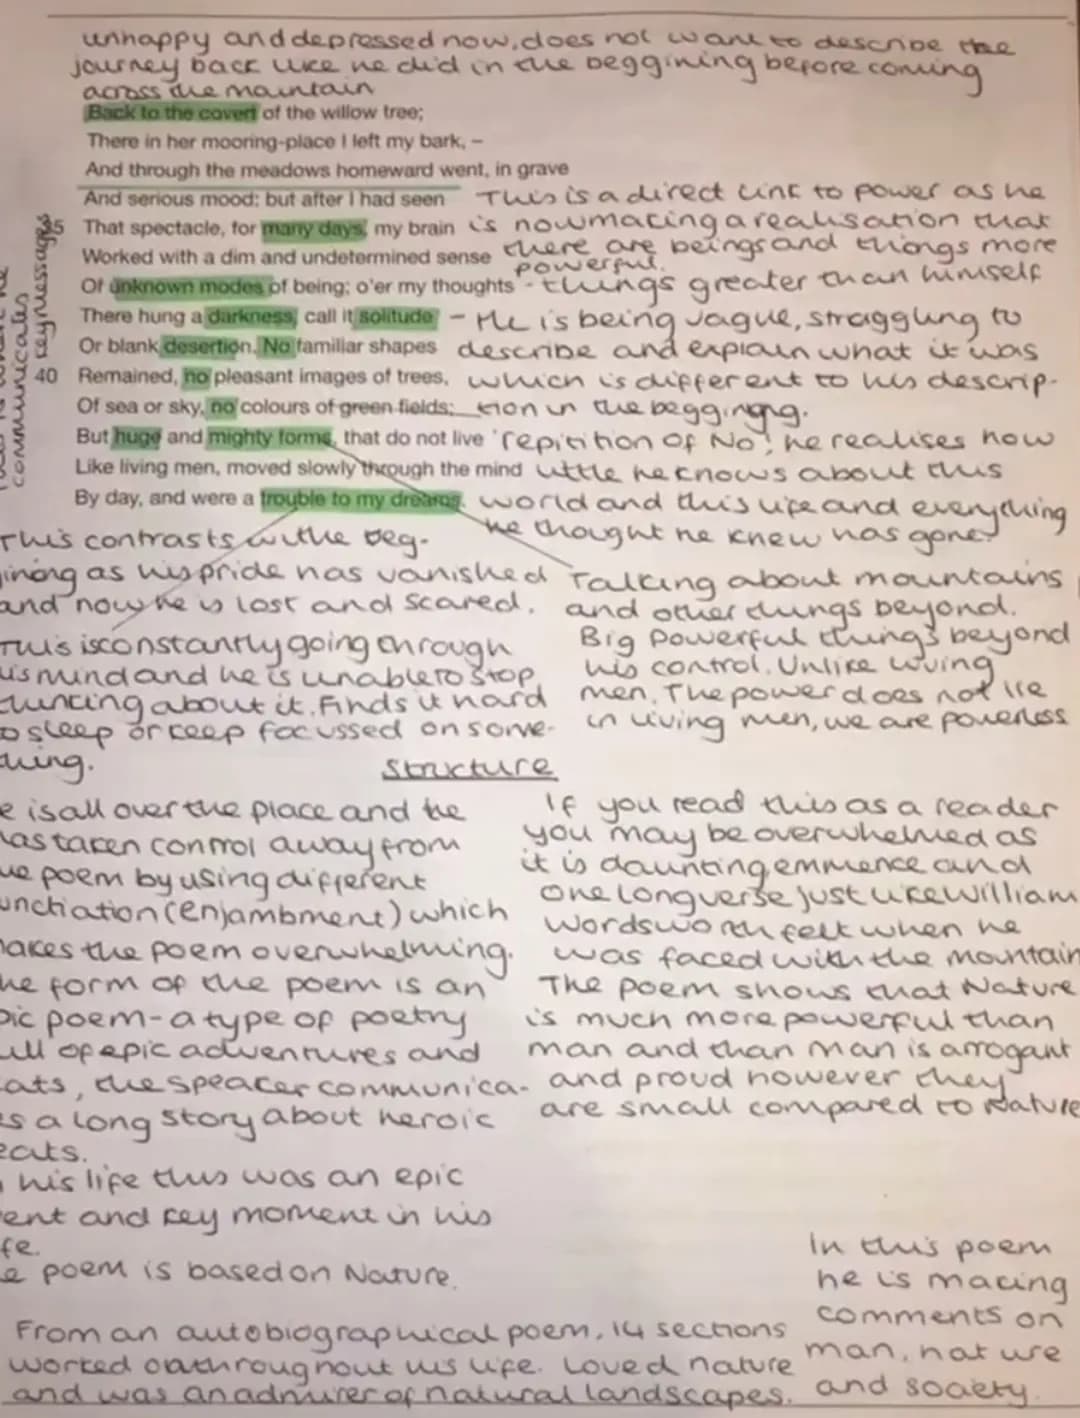 unhappy and depressed now, does not want to describe the
journey back like he did in the beggining before coming
across the maintain
Back to the covert of the willow tree;
There in her mooring-place I left my bark, –
And through the meadows homeward went, in grave
And serious mood; but after I had seen
35 That spectacle, for many days, my brain
Worked with a dim and undetermined sense
Of unknown modes of being; o'er my thoughts
There hung a darkness, call it solitude
Or blank desertion. No familiar shapes
40 Remained, no pleasant images of trees,
Of sea or sky, no colours of green fields;
But huge and mighty forms, that do not live
Like living men, moved slowly through the mind
By day, and were a trouble to my dreams.
communicates
key messages
This is a direct link to power as he
is now making a realisation that
there are beings and things more
powerful.
- things greater than himself
- He is being vague, straggling to
describe and explain what it was
which is different to his descrip-
tion in the beggining.
repitition of No! he realises how
little he knows about this
world and this life and everything
he thought he knew has gone!
This contrasts withe beg-
ining as his pride has vanished
and now he is lost and scared.
This is constantly going through
his mind and he is unable to stop
thinking about it. Finds it hard
to sleep or keep focussed on some-
thing.
Talking about mountains
and other things beyond.
Big powerful things beyond
his control. Unlike living
men. The power does not lie
in living men, we are powerless
Structure
e is all over the place and he
has taken control away from
the poem by using different
unctiation (enjambment) which
makes the poem overwhelming.
he form of the poem is an
pic poem - a type of poetry
ull of epic adventures and
eats, the speaker communica-
es a long story about heroic
eats.
n his life this was an epic
ent and key moment in his
fe.
e poem is based on Nature.
If you read this as a reader
you may be overwhelmed as
it is daunting emmence and
one long verse just like William
Wordsworth felt when he
was faced with the mountain
The poem shows that Nature
is much more powerful than
man and than man is arrogant
and proud however they
are small compared to Nature
In this poem
he is making
comments on
man, nature
and society.
From an autobiographical poem, 14 sections
worked on throughout his life. Loved nature
and was an admirer of natural landscapes.